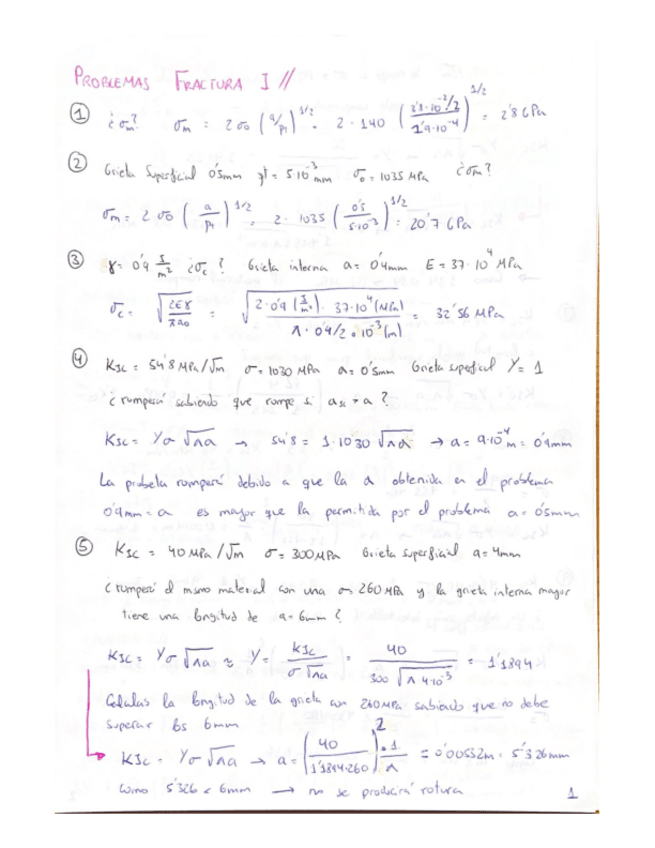 PROBLEMAS FRACTURA I //
① ¿σm? σm = 2σ0 (a/ρt)^1/2 = 2·140 (3'8·10^-2/2 / 1'9·10^-4)^1/2 = 2'8 GPa
② Grieta Superficial 0'5mm ρt = 5·10^-3 mm σ0 = 1035 MPa ¿σm?
σm = 2σ0 (a/ρt)^1/2 = 2·1035 (0'5/5·10^-3)^1/2 = 20'7 GPa
③ γ = 0'9 J/m² ¿σc? Grieta interna a = 0'4mm E = 37·10^4 MPa
σc = √(2Eγ/πa0) = √(2·0'9 (J/m²)·37·10^4 (MPa) / π·0'4/2·10^-3 (m)) = 32'56 MPa
④ KIC = 54'8 MPa/√m σ = 1030 MPa a = 0'5mm Grieta superficial Y = 1
¿romperá sabiendo que rompe si a > a?
KIC = Yσ√πa → 54'8 = 1·1030 √πa → a = 9·10^-4 m = 0'9mm
La probeta romperá debido a que la a obtenida en el problema
0'9mm = a es mayor que la permitida por el problema a = 0'5mm
⑤ KIC = 40 MPa/√m σ = 300 MPa Grieta superficial a = 4mm
¿romperá el mismo material con una σ = 260 MPa y la grieta interna mayor
tiene una longitud de a = 6mm?
KIC = Yσ√πa ≈ Y = KIC/σ√πa = 40/300√π4·10^-3 = 1'1894
Calculas la longitud de la grieta con 260MPa sabiendo que no debe
superar los 6mm
KIC = Yσ√πa → a = (40/1'1894·260)^2 · 1/π = 0'00532m = 5'326mm
Como 5'326 < 6mm → no se producirá rotura
1